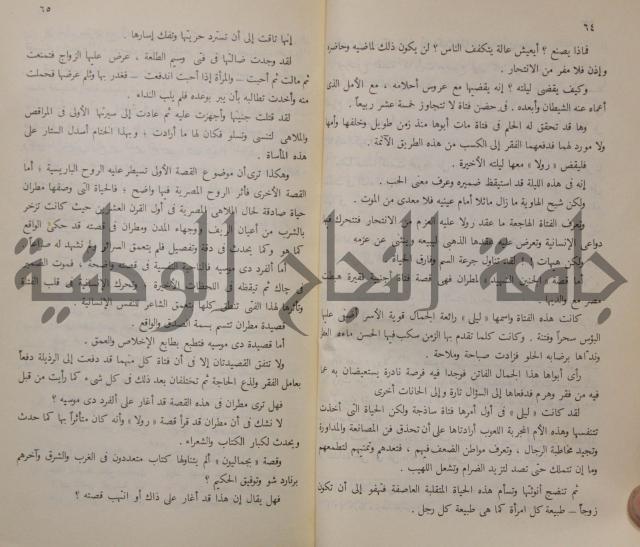 ٦٤
فماذا يصنع ؟ أيعيش عالة يتكفف الناس ؟ لن يكون ذلك لماضيه وحاضره
وإذن فلا مفر من الانتحار .
وكيف يقضى ليلته ؟ إنه يقضيها مع عروس أحلامه ، مع الأمل الذى
أعماه عنه الشيطان وأبعده . فى حضن فتاة لا تتجاوز خمسة عشر ربيعاً .
وها قد تحقق له الحلم فى فتاة مات أبوها منذ زمن طويل وخلفها وأمها
ولا مورد لهما فدفعهما الفقر إلى الكسب من هذه الطريق الآثمة .
فليقض « رولا » معها ليلته الأخيرة .
إنه فى هذه الليلة قد استيقظ ضميره وعرف معنى الحب .
ولكن شبح الهاوية ما زال ماثلا أمام عينيه فلا معدى من الموت .
وتعرف الفتاة الهاجعة ما عقد رولا عليه العزم من الانتحار فتتحرك فيها
دواعى الإنسانية وتعرض عليه عقدها الذهبى ليبيعه وينثنى عن عزمه
ولكن هيهات لقد تناول جرعة السم وفارق الحياة
أما قصة « الجنين الشهيد » لمطران فهى قصة فتاة أجنبية فقيرة هبطت
مصر مع والديها .
كانت هذه الفتاة واسمها « ليلى » رائعة الجمال قوية الأسر أضفى عليها
البؤس سحراً وفتنة . وكانت كلما تقدم بها الزمن سكب فيها الحسن ماءه
ونداها برضابه الحلو فزادت صباحة وملاحة .
رأى أبواها هذا الجمال الفاتن فوجدا فيه فرصة نادرة يستعيضان به عما
فيه من فقر وهرم فدفعاها إلى السؤال تارة وإلى الحانات أخرى
لقد كانت « ليلى » فى أول أمرها فتاة ساذجة ولكن الحياة التى أخذت
تتنفسها وهذه الأم المجربة اللعوب أرادتاها على أن تحذق فن المصانعة والمداورة
وتجيد مخاطبة الرجال ، وتعرف مواطن الضعف فيهم ، فتعدهم وتمنيهم لتطمعهم
وما إن تتملك حتى تصد لتزيد الضرام وتشعل اللهيب .
ثم تنضج أنوثتها وتسأم هذه الحياة المتقلبة العاصفة فتهفو إلى أن تكون
زوجاً – طبيعة كل امرأة كما هى طبيعة كل رجل .
٦٥
إنها تاقت إلى أن تسترد حريتها وتفك إسارها .
لقد وجدت ضالتها فى فتى وسيم الطلعة ، عرض عليها الزواج فتمنعت
ثم مالت ثم أحبت – والمرأة إذا أحبت اندفعت – فغدر بها وثلم عرضها فحملت
منه وأخذت تطالبه بأن يبر بوعده فلم يلب النداء .
لقد قتلت جنينها وأجهزت عليه ثم عادت إلى سيرتها الأولى فى المراقص
والملاهى لتنسى وتسلو فكان لها ما أرادت ؛ وبهذا الختام أسدل الستار على
هذه المأساة .
وهكذا ترى أن موضوع القصة الأولى تسيطر عليه الروح الباريسية ؛ أما
القصة الأخرى فأثر الروح المصرية فيها واضح ؛ فالحياة التى وصفها مطران
حياة صادقة لحال الملاهى المصرية فى أول القرن العشرين حيث كانت تزخر
بالشرب من أعيان الريف ووجهاء المدن ومطران فى قصته قد حكى الواقع
كما هو وكما يحدث فى دقة وتفصيل فلم يتعمق السرائر ولم نشهد له صراعاً
أما ألفرد دى موسيه فالناحية النفسية فى قصته واضحة ، فموت الضمير
فى جاك ثم تيقظه فى اللحظات الأخيرة وتحرك الإنسانية فى قلب الفتاة
وتأثرها لهذا الفتى تنطق كلها بتعمق الشاعر للنفس الإنسانية .
قصيدة مطران تتسم بسمة الصدق والواقع .
أما قصيدة دى موسيه فتطبع بطابع الإخلاص والعمق .
ولا تتفق القصيدتان إلا فى أن فتاة كل منهما قد دفعت إلى الرذيلة دفعاً
بعامل الفقر ولذع الحاجة ثم تختلفان بعد ذلك فى كل شىء كما رأيت من قبل
فهل ترى مطران فى هذه القصة قد أغار على ألفرد دى موسيه ؟
لا نشك فى أن مطران قد قرأ قصة « رولا » وأنه كان متأثراً بها كما حدث
ويحدث لكبار الكتاب والشعراء .
وقصة « بجماليون » ألم يتناولها كتاب متعددون فى الغرب والشرق وآخرهم
برنارد شو وتوفيق الحكيم ؟
فهل يقال إن هذا قد أغار على ذاك أو انتهب قصته ؟
جامعة النجاح الوطنية